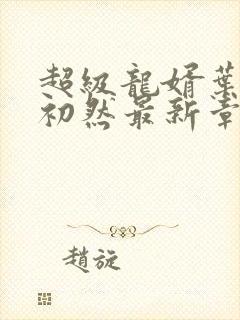 超級龍婿葉
初然最新章
趙旋